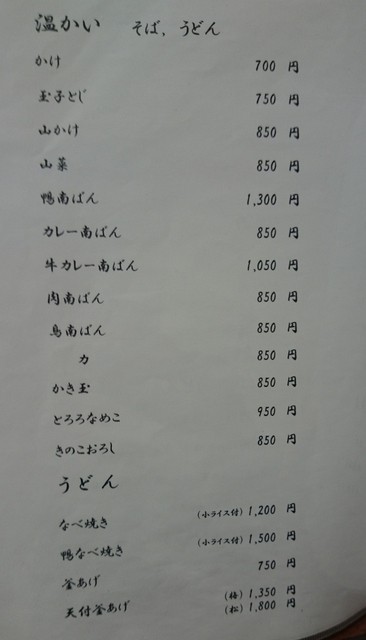 温かい そば、うどん
かけ 700 円
玉子とじ 750 円
山かけ 850 円
山菜 850 円
鴨南ばん 1,300 円
カレー南ばん 850 円
牛カレー南ばん 1,050 円
肉南ばん 850 円
鳥南ばん 850 円
力 850 円
かき玉 850 円
とろろなめこ 950 円
きのこおろし 850 円
うどん
なべ焼き (小ライス付) 1,200 円
鴨なべ焼き (小ライス付) 1,500 円
釜あげ 750 円
天付釜あげ (梅) 1,350 円
(松) 1,800 円